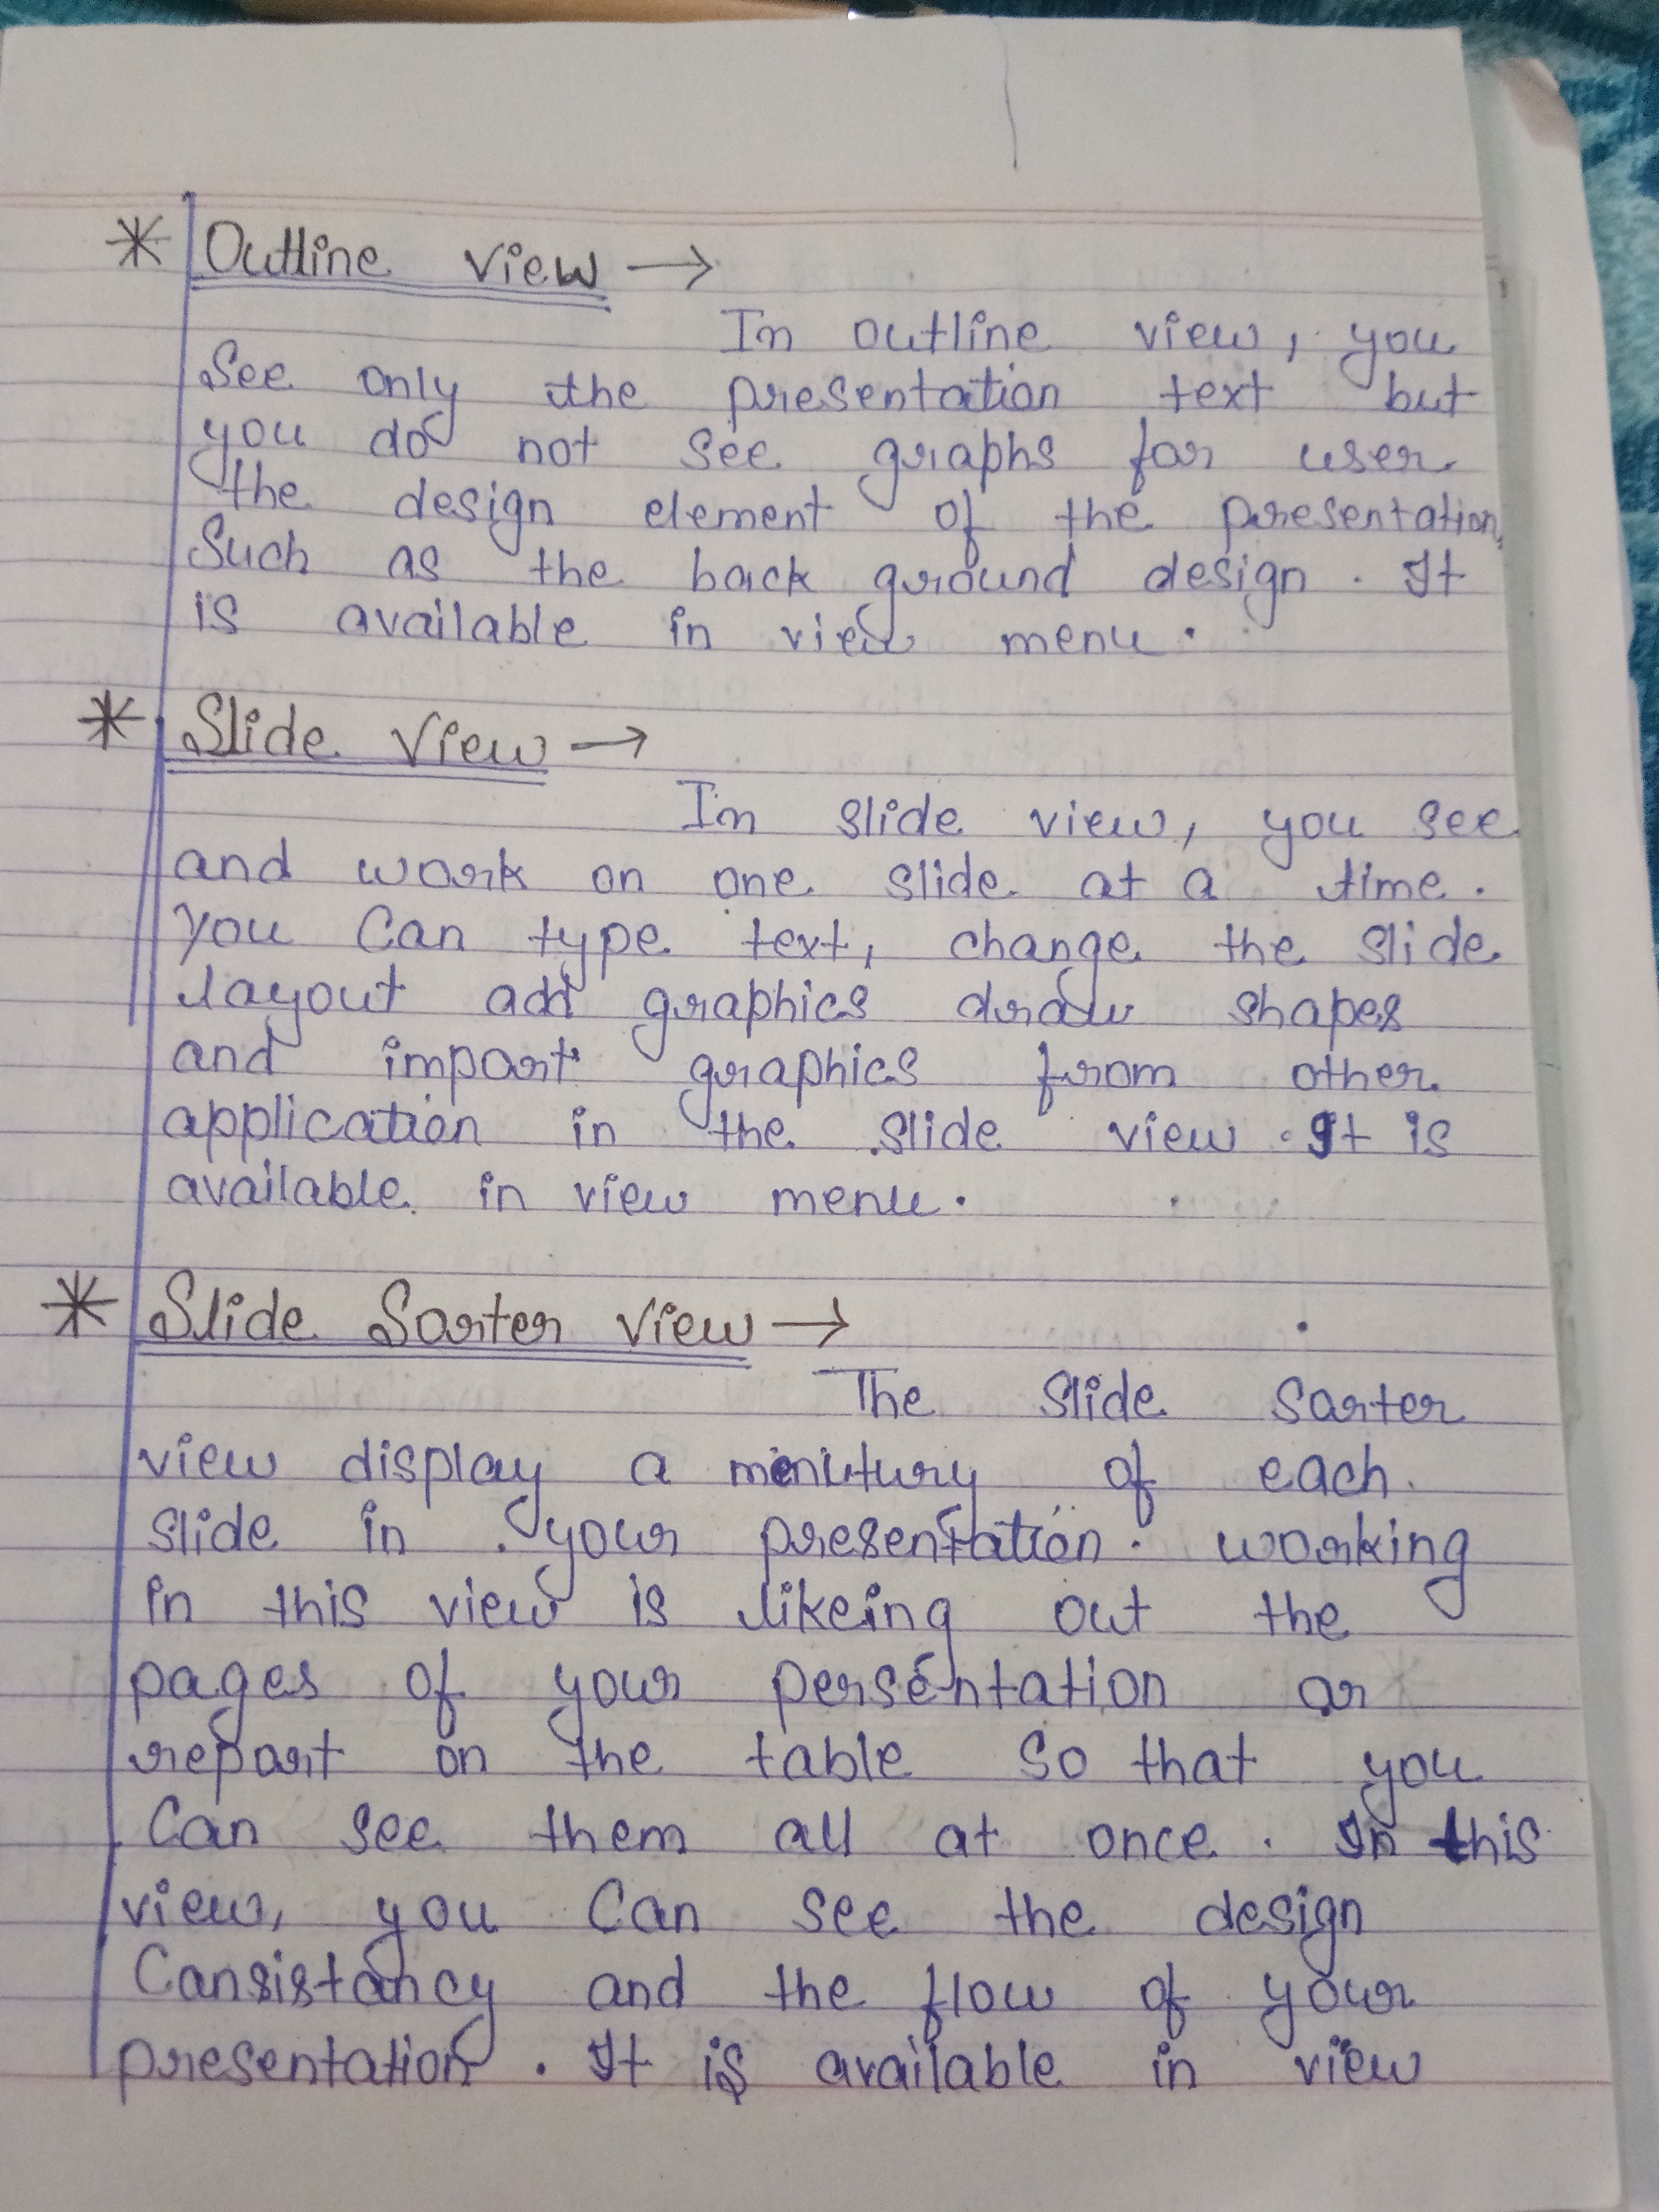 * Outline view →
In outline view, you
See only the presentation text but
you do not see graphs for user
the design element of the presentation,
Such as the back ground design. It
is available in view menu.
* Slide View →
In slide view, you see
and work on one slide at a time.
You Can type text, change the slide
layout add graphics draw shapes
and import graphics from other
application in the slide view. It is
available in view menu.
* Slide Sorter View →
The Slide Sorter
view display a menitury of each
slide in your presentation. working
in this view is likeing out the
pages of your persentation or
report on the table so that you
Can see them all at once. In this
view, you Can see the design
Consistancy and the flow of your
presentation. It is available in view